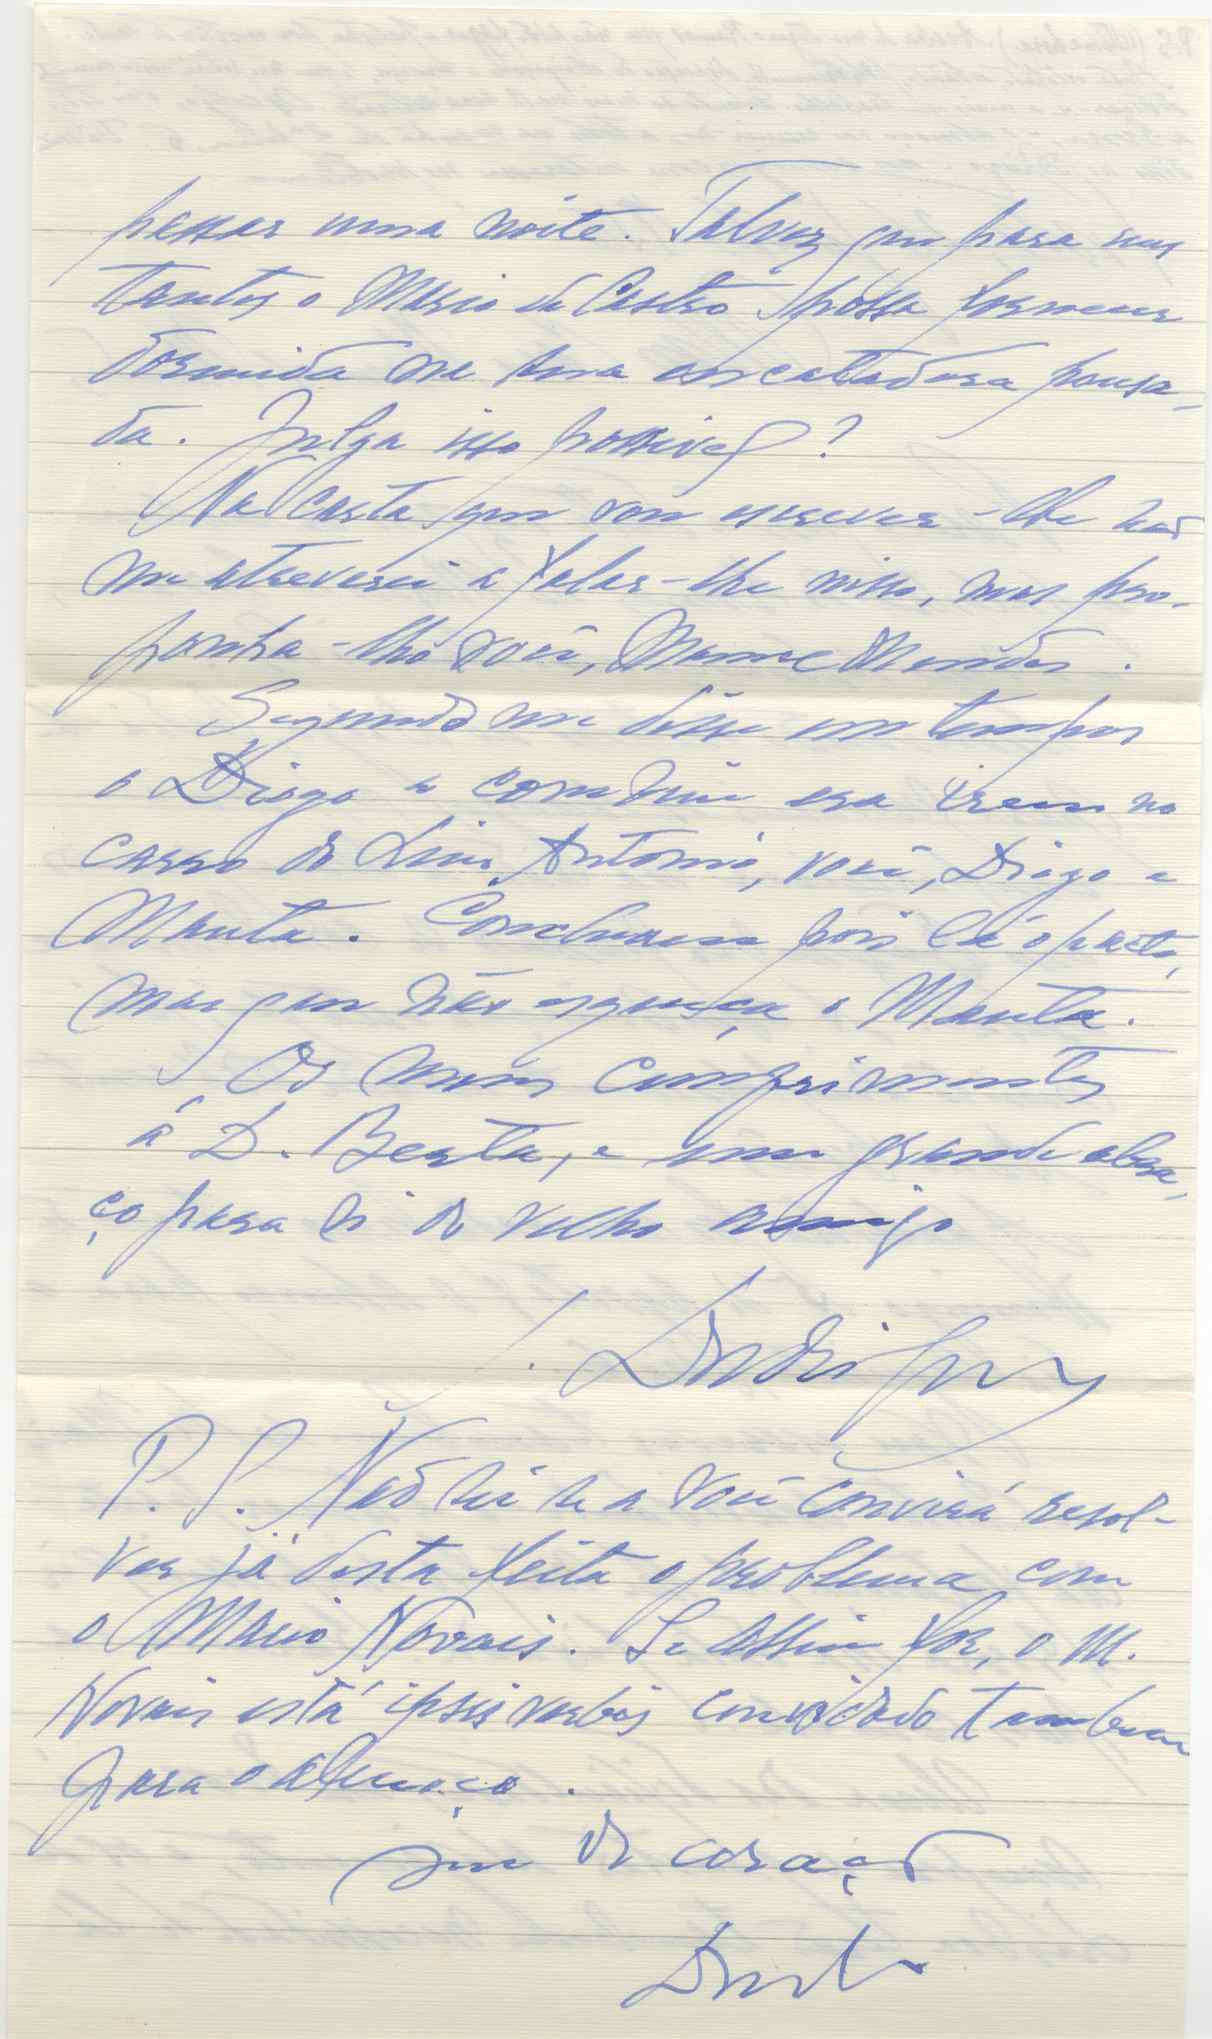 passar uma noite. Talvez que para uns
tantos o Mario de Castro possa fornecer
dormida na sua encantadora pousa-
da. Julga isso possivel?
Na carta que vou escrever-lhe não
me atreverei a falar-lhe nisso, mas pro-
ponha-lho você, Manuel Mendes.
Segundo me disse em tempos
o Diogo a combin era irem no
carro do Luis Antonio, você, Diogo e
Manta. Concluam pois lá o pacto,
mas que não esqueça o Manta.
Os meus cumprimentos
á D. Berta, e um grande abra-
ço para si do velho amigo
P. S. Não sei se a você convirá resol-
ver já desta feita o problema com
o Mario Novais. Se assim for, o M.
Novais está ipsis verbis convidado tambem
para o almoço.
Seu do coração